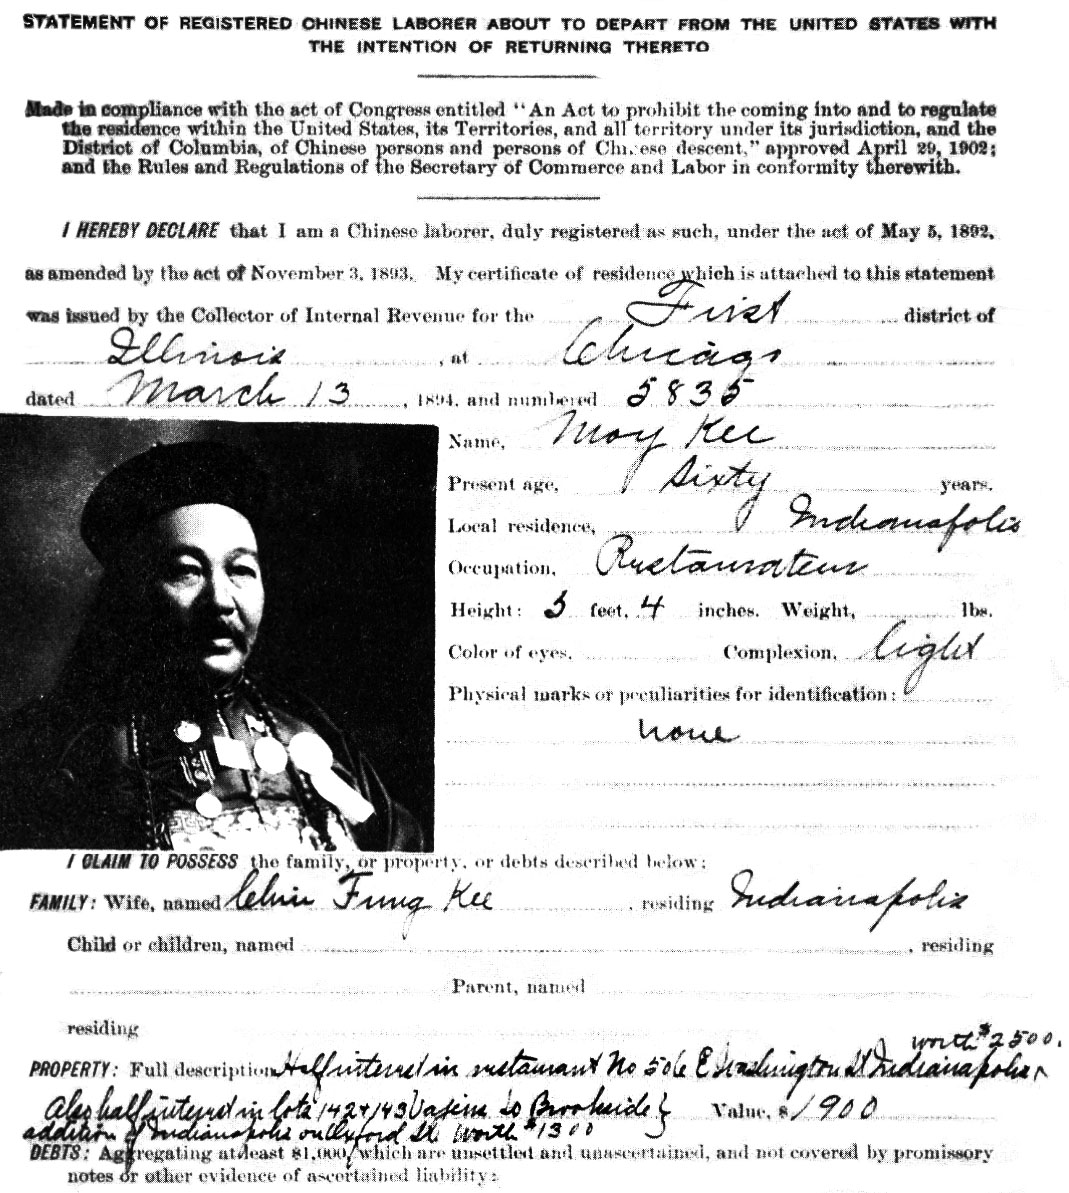 STATEMENT OF REGISTERED CHINESE LABORER ABOUT TO DEPART FROM THE UNITED STATES WITH
THE INTENTION OF RETURNING THERETO
Made in compliance with the act of Congress entitled "An Act to prohibit the coming into and to regulate
the residence within the United States, its Territories, and all territory under its jurisdiction, and the
District of Columbia, of Chinese persons and persons of Chinese descent," approved April 29, 1902;
and the Rules and Regulations of the Secretary of Commerce and Labor in conformity therewith.
I HEREBY DECLARE that I am a Chinese laborer, duly registered as such, under the act of May 5, 1892,
as amended by the act of November 3, 1893. My certificate of residence which is attached to this statement
was issued by the Collector of Internal Revenue for the First district of
Illinois, at Chicago
dated March 13, 1894, and numbered 5835
Name, Moy Kee
Present age, Sixty years.
Local residence, Indianapolis
Occupation, Restaurateur
Height: 5 feet, 4 inches. Weight, lbs.
Color of eyes, Complexion, light
Physical marks or peculiarities for identification:
none
I CLAIM TO POSSESS the family, or property, or debts described below:
FAMILY: Wife, named Chin Fung Kee, residing Indianapolis
Child or children, named , residing
Parent, named
residing
worth $2500.
PROPERTY: Full description Half interest in restaurant No 506 E Washington St Indianapolis
Also half interest in lots 142 & 143 So Brookside } Value, $ 1900
addition of Indianapolis on Oxford St. worth $1300
DEBTS: Aggregating at least $1,000, which are unsettled and unascertained, and not covered by promissory
notes or other evidence of ascertained liability: